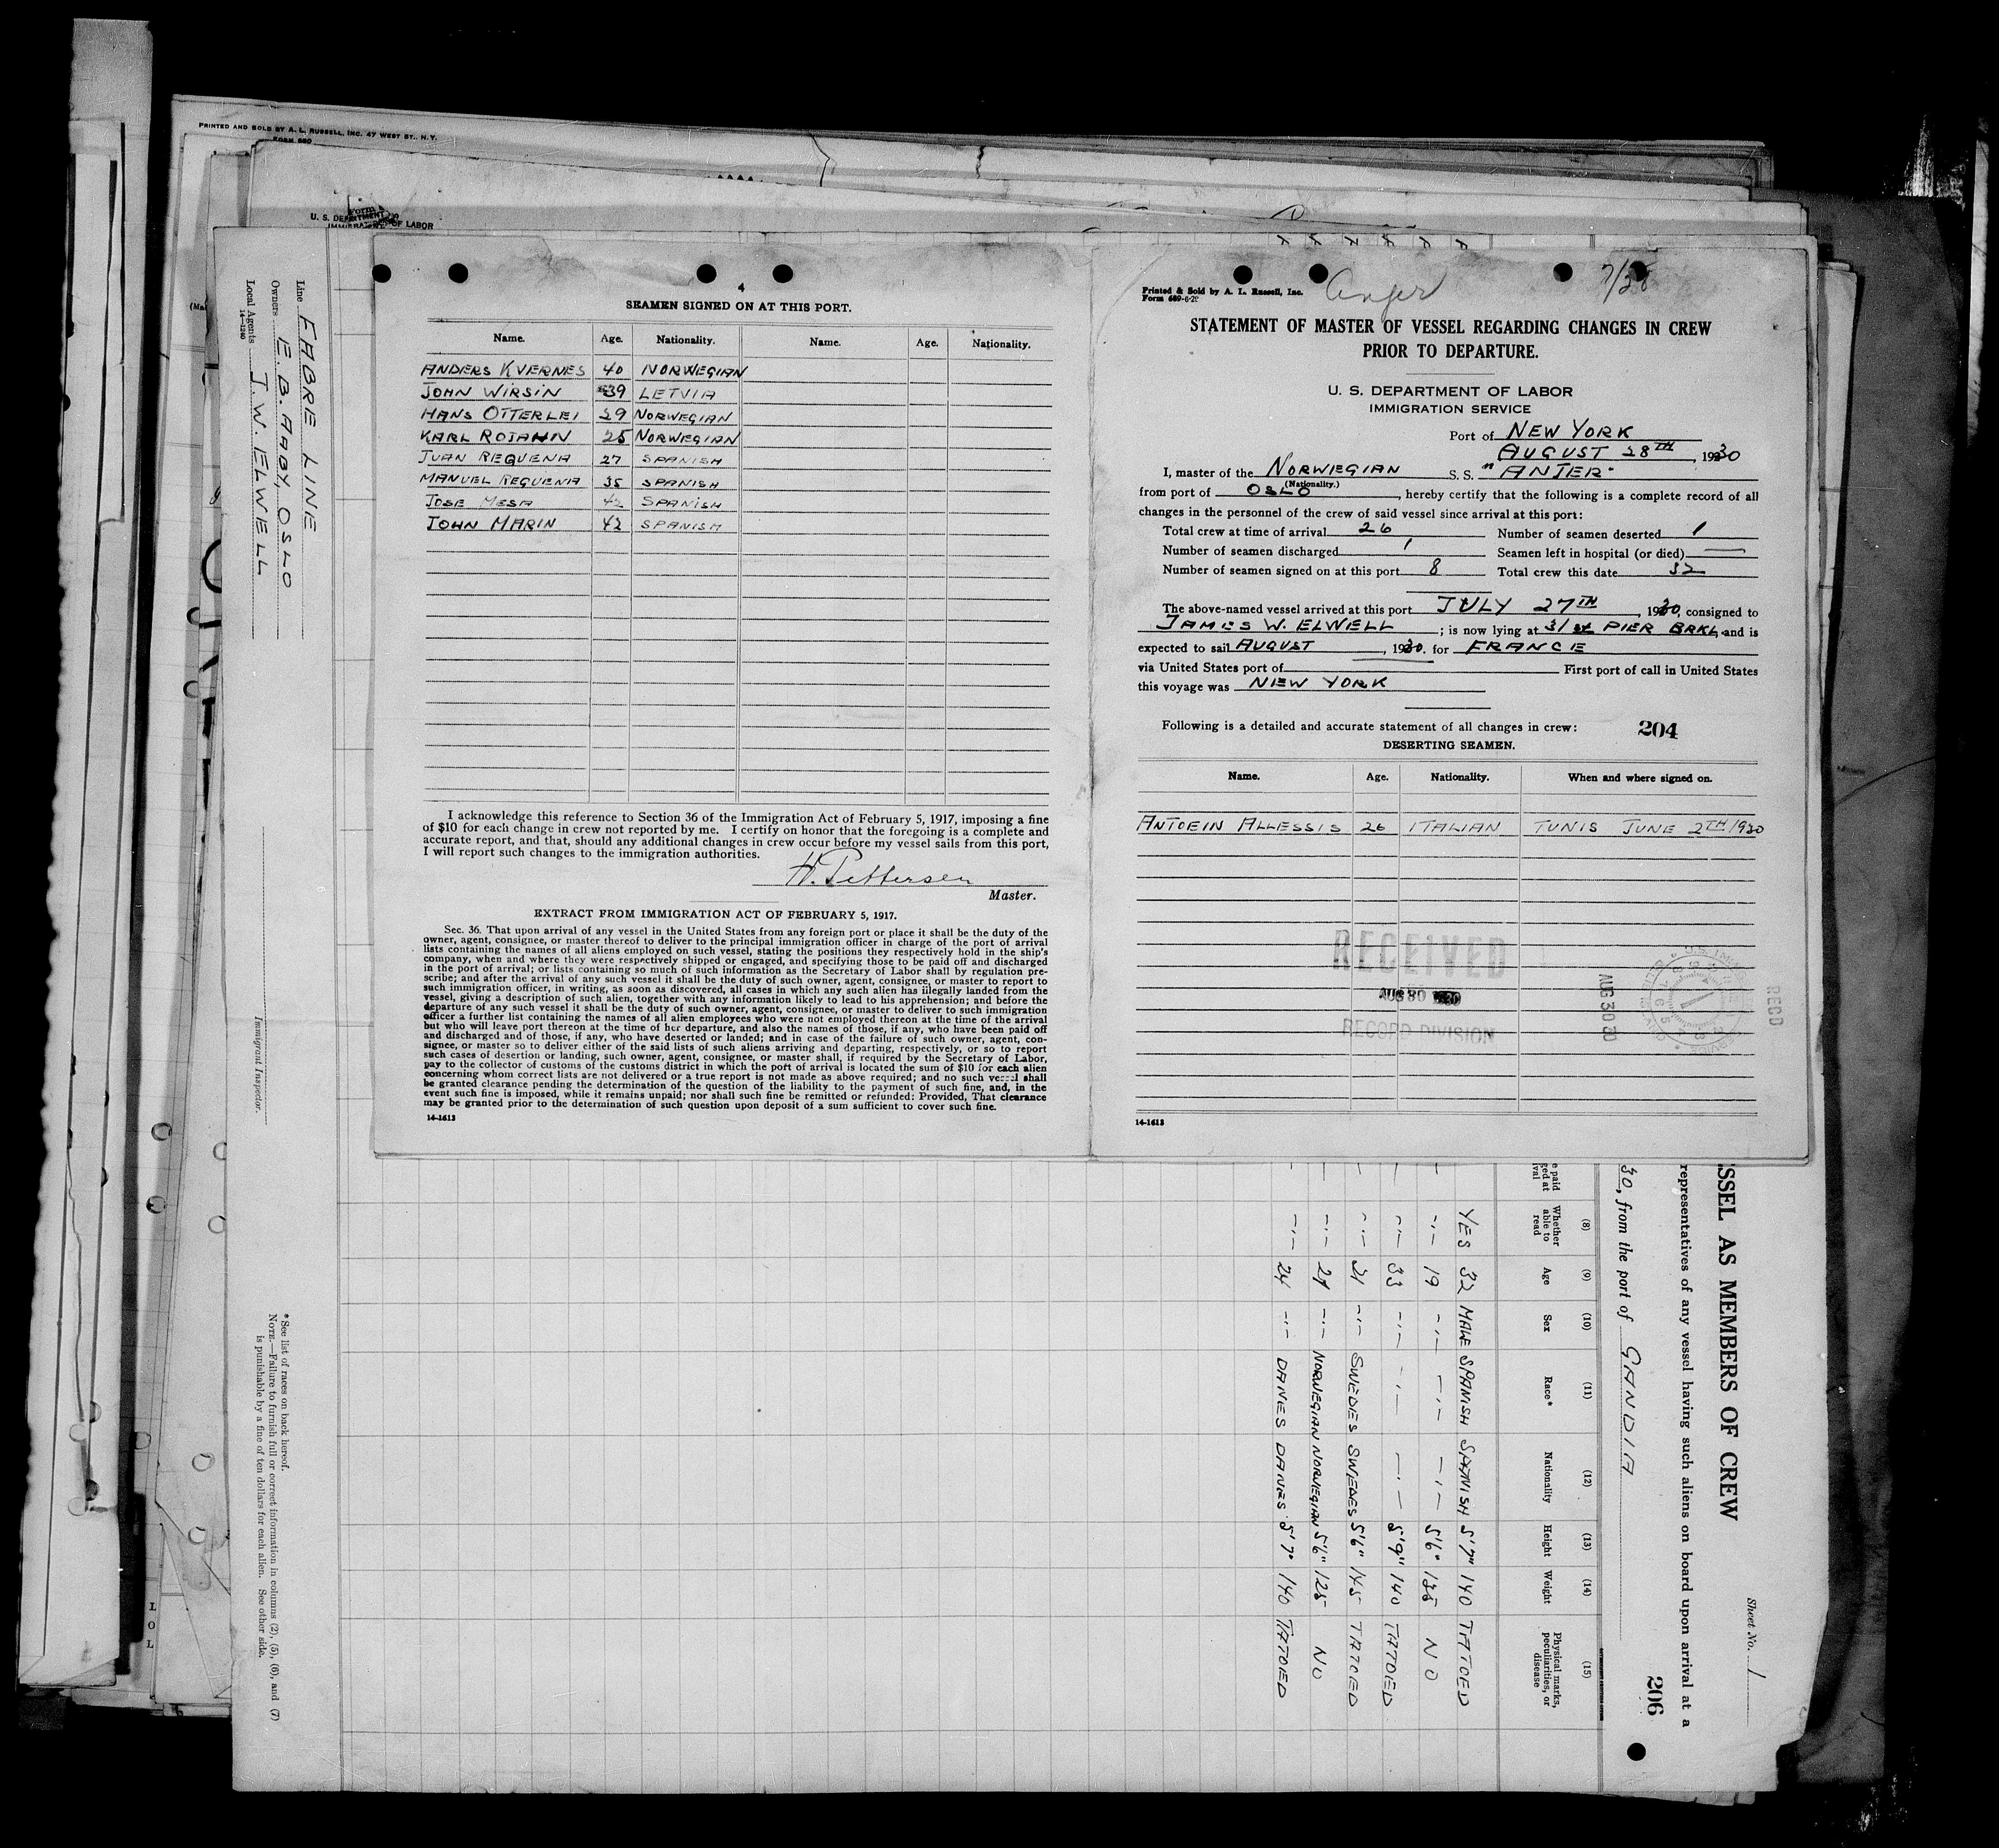 PRINTED AND SOLD BY A. L. RUSSELL, INC. 47 WEST ST., N.Y.
FORM 680
U. S. DEPARTMENT OF LABOR
Line FABRE LINE
Owners E. B. AABY, OSLO
Local Agents J. W. ELWELL
14-1240
Immigrant Inspector.
*See list of races on back hereof.
NOTE.—Failure to furnish full or correct information in columns (2), (5), (6), and (7)
is punishable by a fine of ten dollars for each alien. See other side.
4
SEAMEN SIGNED ON AT THIS PORT.
Name. Age. Nationality. Name. Age. Nationality.
ANDERS KVERNES 40 NORWEGIAN
JOHN WIRSIN 39 LETVIA
HANS OTTERLEI 29 NORWEGIAN
KARL ROJAHN 25 NORWEGIAN
JUAN REQUENA 27 SPANISH
MANUEL REQUENA 35 SPANISH
JOSE MESA 42 SPANISH
JOHN MARIN 42 SPANISH
I acknowledge this reference to Section 36 of the Immigration Act of February 5, 1917, imposing a fine
of $10 for each change in crew not reported by me. I certify on honor that the foregoing is a complete and
accurate report, and that, should any additional changes in crew occur before my vessel sails from this port,
I will report such changes to the immigration authorities.
H. Pettersen
Master.
EXTRACT FROM IMMIGRATION ACT OF FEBRUARY 5, 1917.
Sec. 36. That upon arrival of any vessel in the United States from any foreign port or place it shall be the duty of the
owner, agent, consignee, or master thereof to deliver to the principal immigration officer in charge of the port of arrival
lists containing the names of all aliens employed on such vessel, stating the positions they respectively hold in the ship's
company, when and where they were respectively shipped or engaged, and specifying those to be paid off and discharged
in the port of arrival; or lists containing so much of such information as the Secretary of Labor shall by regulation pre-
scribe; and after the arrival of any such vessel it shall be the duty of such owner, agent, consignee, or master to report to
such immigration officer, in writing, as soon as discovered, all cases in which any such alien has illegally landed from the
vessel, giving a description of such alien, together with any information likely to lead to his apprehension; and before the
departure of any such vessel it shall be the duty of such owner, agent, consignee, or master to deliver to such immigration
officer a further list containing the names of all alien employees who were not employed thereon at the time of the arrival
but who will leave port thereon at the time of her departure, and also the names of those, if any, who have been paid off
and discharged and of those, if any, who have deserted or landed; and in case of the failure of such owner, agent, con-
signee, or master so to deliver either of the said lists of such aliens arriving and departing, respectively, or so to report
such cases of desertion or landing, such owner, agent, consignee, or master shall, if required by the Secretary of Labor,
pay to the collector of customs of the customs district in which the port of arrival is located the sum of $10 for each alien
concerning whom correct lists are not delivered or a true report is not made as above required; and no such vessel shall
be granted clearance pending the determination of the question of the liability to the payment of such fine, and, in the
event such fine is imposed, while it remains unpaid; nor shall such fine be remitted or refunded: Provided, That clearance
may be granted prior to the determination of such question upon deposit of a sum sufficient to cover such fine.
14-1613
Printed & Sold by A. L. Russell, Inc.
Form 689-6-29
Anjer
7/28
STATEMENT OF MASTER OF VESSEL REGARDING CHANGES IN CREW
PRIOR TO DEPARTURE.
U. S. DEPARTMENT OF LABOR
IMMIGRATION SERVICE
Port of NEW YORK
AUGUST 28TH, 1930
I, master of the NORWEGIAN S. S. "ANJER"
(Nationality.)
from port of OSLO, hereby certify that the following is a complete record of all
changes in the personnel of the crew of said vessel since arrival at this port:
Total crew at time of arrival 26 Number of seamen deserted 1
Number of seamen discharged 1 Seamen left in hospital (or died) —
Number of seamen signed on at this port 8 Total crew this date 32
The above-named vessel arrived at this port JULY 27TH, 1930, consigned to
JAMES W. ELWELL; is now lying at 31st PIER BRKL, and is
expected to sail AUGUST, 1930. for FRANCE
via United States port of First port of call in United States
this voyage was NEW YORK
Following is a detailed and accurate statement of all changes in crew: 204
DESERTING SEAMEN.
Name. Age. Nationality. When and where signed on.
ANTOEIN ALLESSIS 26 ITALIAN TUNIS JUNE 2TH 1930
RECEIVED
AUG 30 1930
RECORD DIVISION
AUG 30 30
RECD
14-1613
SSEL AS MEMBERS OF CREW
Sheet No. 1
representatives of any vessel having such aliens on board upon arrival at a
30, from the port of GANDIA
206
(8) (9) (10) (11) (12) (13) (14) (15)
Whether able to read Age Sex Race* Nationality Height Weight Physical marks, peculiarities, or disease
YES 32 MALE SPANISH SPANISH 5'7" 140 TATOED
-"- 19 -"- -"- -"- 5'6" 135 NO
-"- 33 -"- -"- -"- 5'9" 140 TATOED
-"- 21 -"- SWEDES SWEDES 5'6" 145 TATOED
-"- 29 -"- NORWEGIAN NORWEGIAN 5'6" 125 NO
-"- 24 -"- DANES DANES 5'7" 140 TATOED